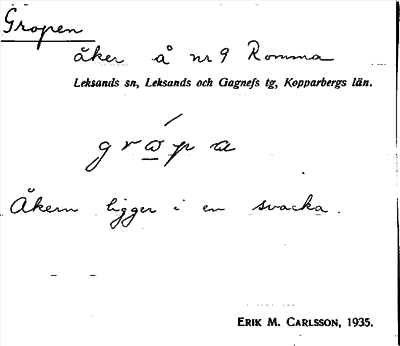 Gropen
åker å nr 9 Romma
Leksands sn, Leksands och Gagnefs tg, Kopparbergs län.
grώpa
Åkern ligger i en svacka.
ERIK M. CARLSSON, 1935.